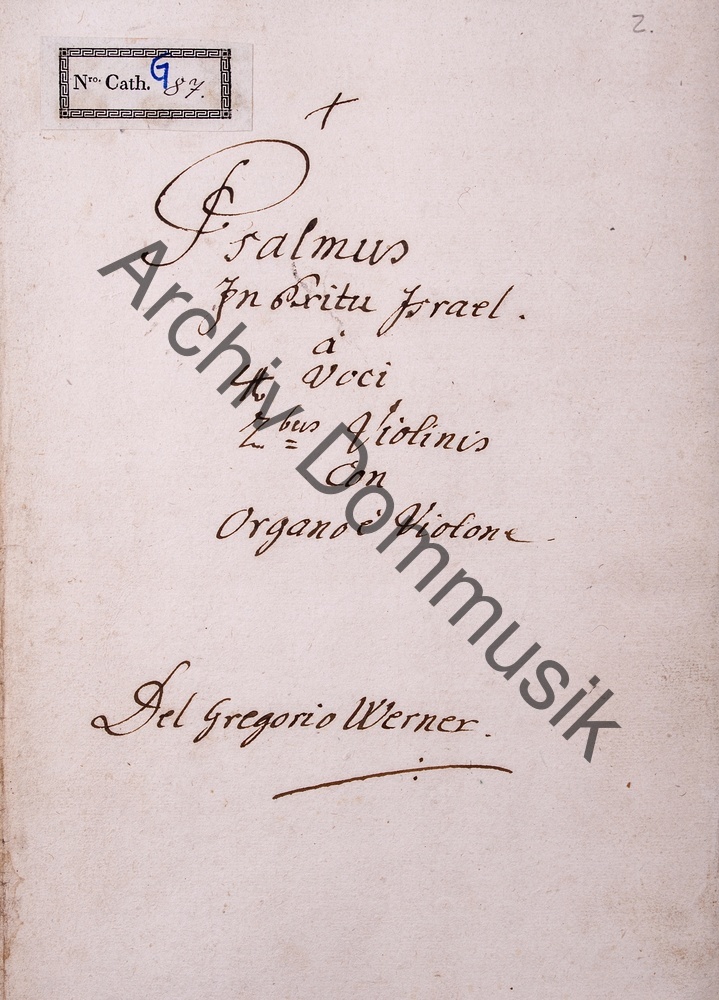 2.
Nro. Cath. G 87.
Psalmus
In Exitu Israel.
á
4 Voci
2bus Violinis
Con
Organo è Violone.
Del Gregorio Werner.
Archiv Dommusik